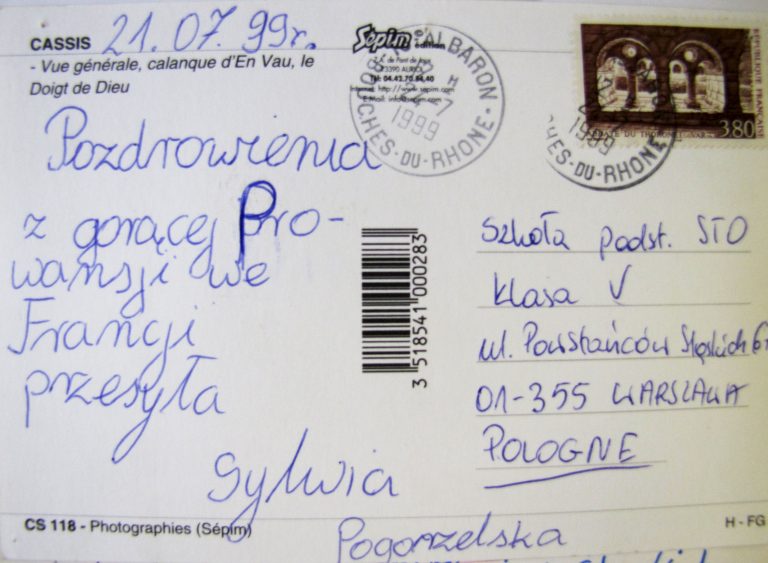 CASSIS 21.07.99r.
- Vue générale, calanque d'En Vau, le
Doigt de Dieu
Sépim édition
Z.A. de Pont de Joux
13390 AURIOL
Tél: 04.42.70.84.40
Internet: http://www.sepim.com
E-Mail: info@sepim.com
ALBARON
1999
BOUCHES-DU-RHONE
REPUBLIQUE FRANÇAISE
3,80
ABBAYE DU THORONET-VAR
1999
DU-RHONE
Pozdrowienia
z gorącej Pro-
wansji we
Francji
przesyła
Sylwia
Pogorzelska
3 518541 000283
Szkoła podst. STO
klasa V
ul. Powstańców Śląskich
01-355 WARSZAWA
POLOGNE
CS 118 - Photographies (Sépim)
H - FG